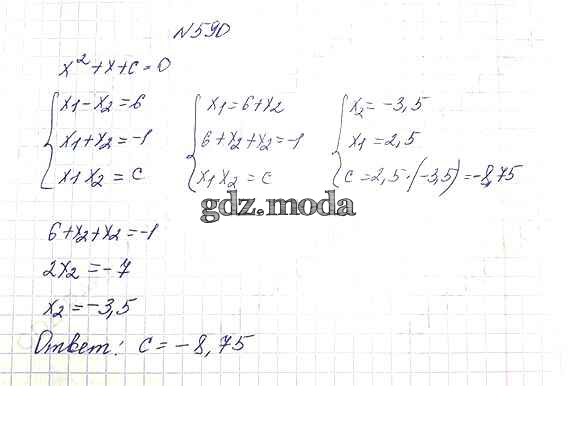 N590
x² + x + c = 0
x1 - x2 = 6
x1 + x2 = -1
x1 x2 = c
x1 = 6 + x2
6 + x2 + x2 = -1
x1 x2 = c
x2 = -3,5
x1 = 2,5
c = 2,5 · (-3,5) = -8,75
gdz.moda
6 + x2 + x2 = -1
2x2 = -7
x2 = -3,5
Ответ: c = -8,75